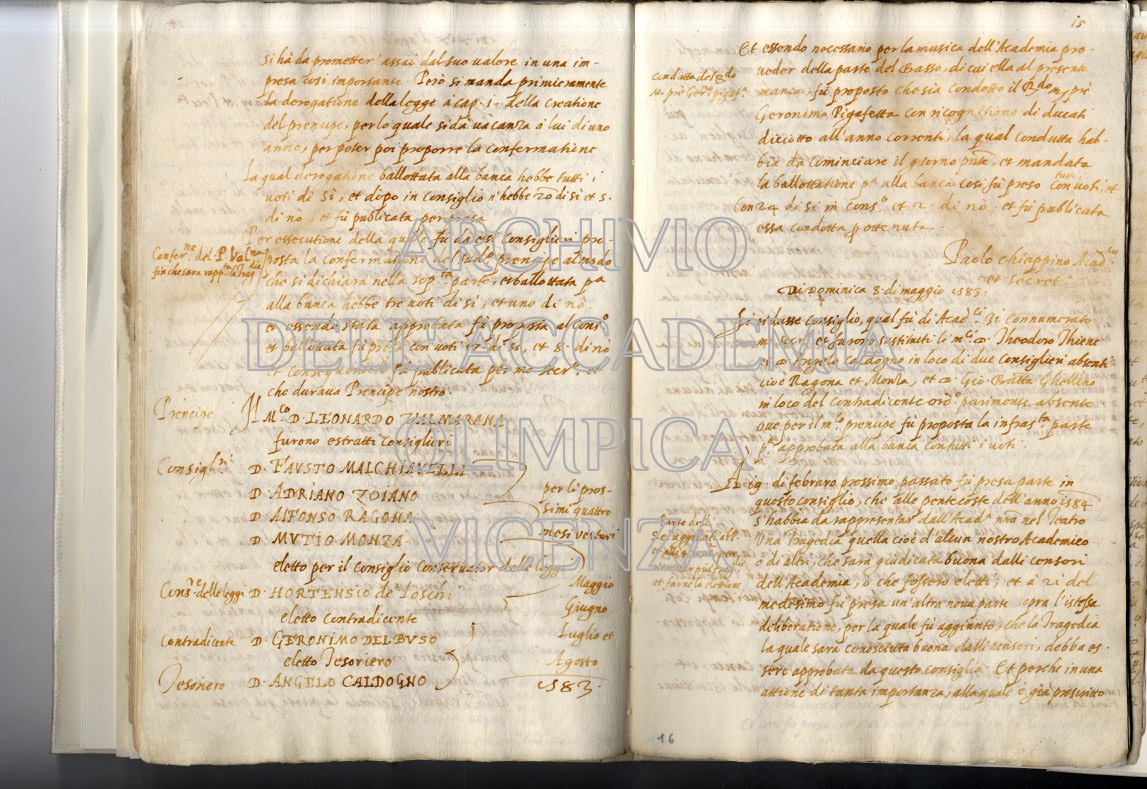 si hà da prometter assai dal suo valore in una im-
presa così importante. Però si manda primieramente
la derogatione della legge a cap. 1. della creatione
del prencipe, per lo quale si dà vacanza à lui di uno
anno, per poter poi proporre la confermatione
la qual derogatione ballottata alla banca hebbe tutti i
voti di sì, et dopo in consiglio n'hebbe 20 di sì et 5.
di nò, et fù publicata per presa
Per essecutione della quale fù da essi consiglieri pro-
Conferne del P. Val
posta la confermatione del prencipe al modo
che si dichiara nella parte, et ballottata
alla banca hebbe tre voti di sì, et uno di nò
et essendo stata approbata fù proposta al Conso
et ballottata fù presa con voti di sì, et 8. di nò
et consequentemente fù publicata per me Secro et
che durava Prencipe nostro.
Prencipe Il Mco D. LEONARDO VALMARANA
furono estratti Consiglieri
Consiglri D. FAUSTO MALCHIAVELLI
D. ADRIANO TOIANO
D. ALFONSO RAGONA
D. MUTIO MONZA
per li pros-
simi quattro
mesi venturi
eletto per il Consiglio Conservator delle leggi
Conse delle leggi D. HORTENSIO de Loschi
eletto Contradicente
Contradicente D. GERONIMO DEL BUSO
eletto Tesoriero
Tesoriero D. ANGELO CALDOGNO
Maggio
Giugno
Luglio et
Agosto
1583.
15
Et essendo necessario per la musica dell'Academia pro-
veder della parte del Basso, di cui ella al presente
Condutta del Rdo
manca, fù proposto che sia condotto il Rdo pre
Geronimo Pigafetta con ricognitione di ducati
diciotto all'anno correnti, la qual condutta hab-
bia da cominciare il giorno pnte, et mandata
la ballottatione pa alla banca così fù preso con tutti voti, et
con 24 di sì in Conso et 2. di nò. et fù publicata
essa condotta ottenuta.
Paolo chiappino Acadco
et Secreto
Di Dominica 8. di maggio 1583.
Si ridusse consiglio, qual fù di Acadci connumerato
m. Secr. et furono sustituiti li mci Theodoro Thiene
et Angelo Caldogno in loco di due consiglieri absenti
cioè Ragona et Monza, et Gio. Batta Ghellino
in loco del contradicente ordo parimente absente
ove per il mco prencipe fù proposta la infrasta parte
pa approbata alla banca con tutti i voti
A 09. di febraro prossimo passato fù presa parte in
questo consiglio, che alle pentecoste dell'anno 1584
s'habbia da rappresentar dall'Acada nra nel Teatro
Una Tragedia quella cioè d'alcun nostro Academico
o di altri, che sarà giudicata buona dalli censori
dell'Academia, ò che fossero eletti; et à 21 del
medesimo fù presa un'altra nova parte sopra l'istessa
deliberatione, per la quale fù aggiunto, che la Tragedia
la quale sarà conosciuta buona dalli censori, debba es-
sere approbata da questo consiglio. Et perche in una
attione di tanta importanza, alla quale è già prescritto
16
ARCHIVIO
DELL'ACCADEMIA
OLIMPICA
VICENZA